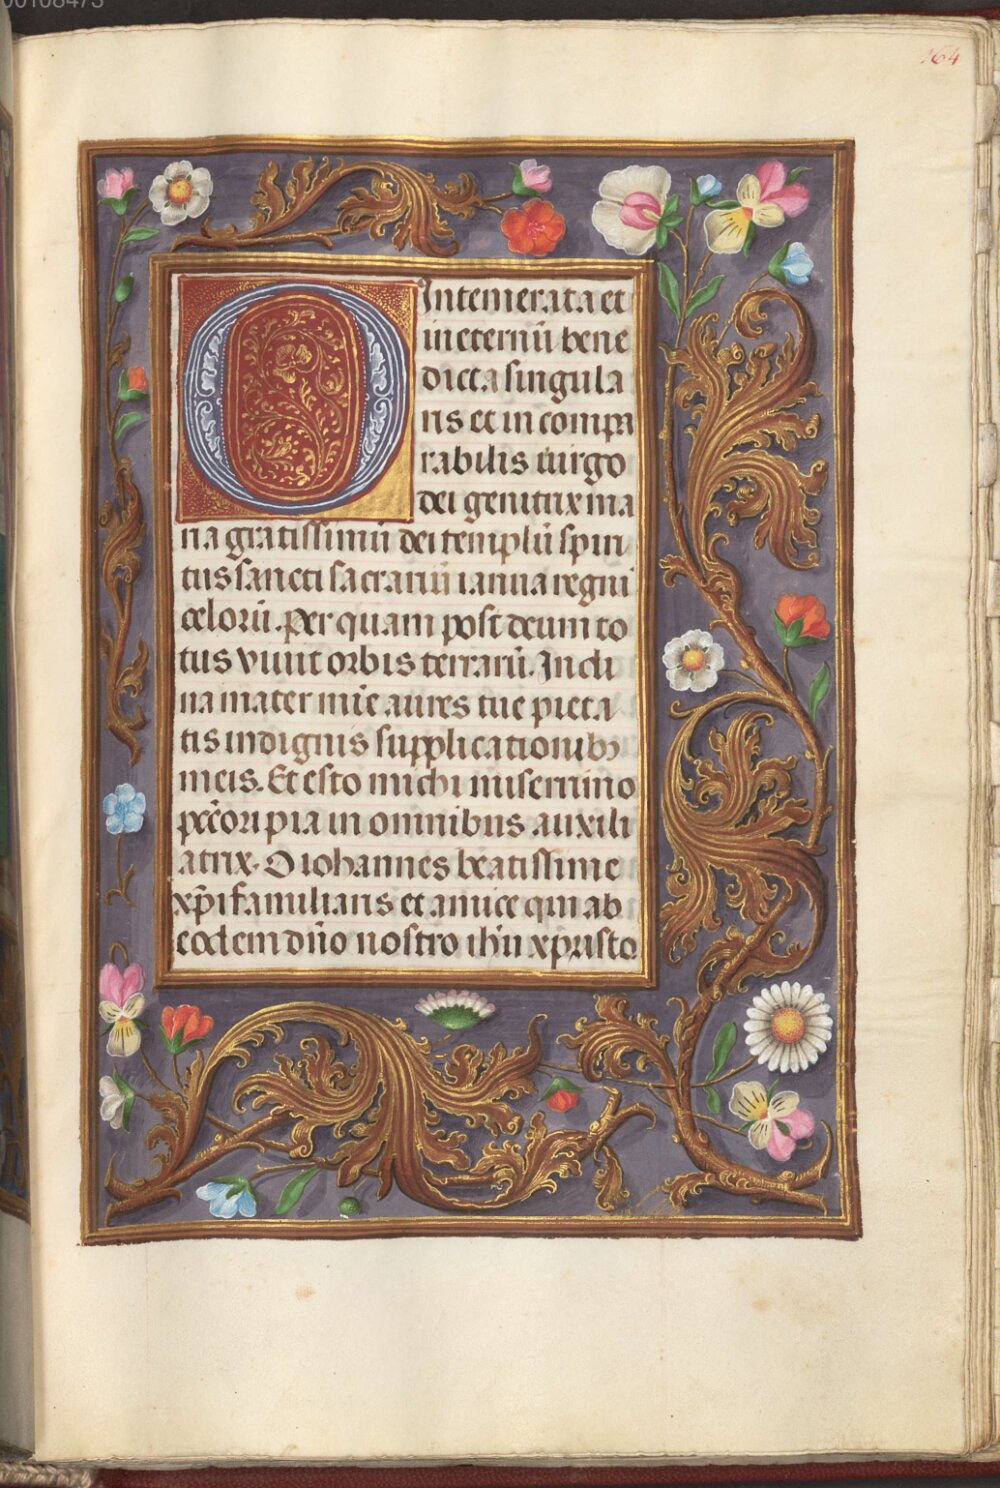 00108473
164
O Intemerata et
in eternū bene
dicta singula
ris et in compa
rabilis virgo
dei genitrix ma
ria gratissimū dei templū spiri
tus sancti sacrariū ianua regni
celorū. Per quam post deum to
tus viuit orbis terrarū. Incli
na mater mīe aures tue pieta
tis indignis supplicationibꝫ
meis. Et esto michi miserrimo
pc̄cori pia in omnibus auxili
atrix. O iohannes beatissime
xp̄i familiaris et amice qui ab
eodem dn̄o nostro ih̄u xp̄risto